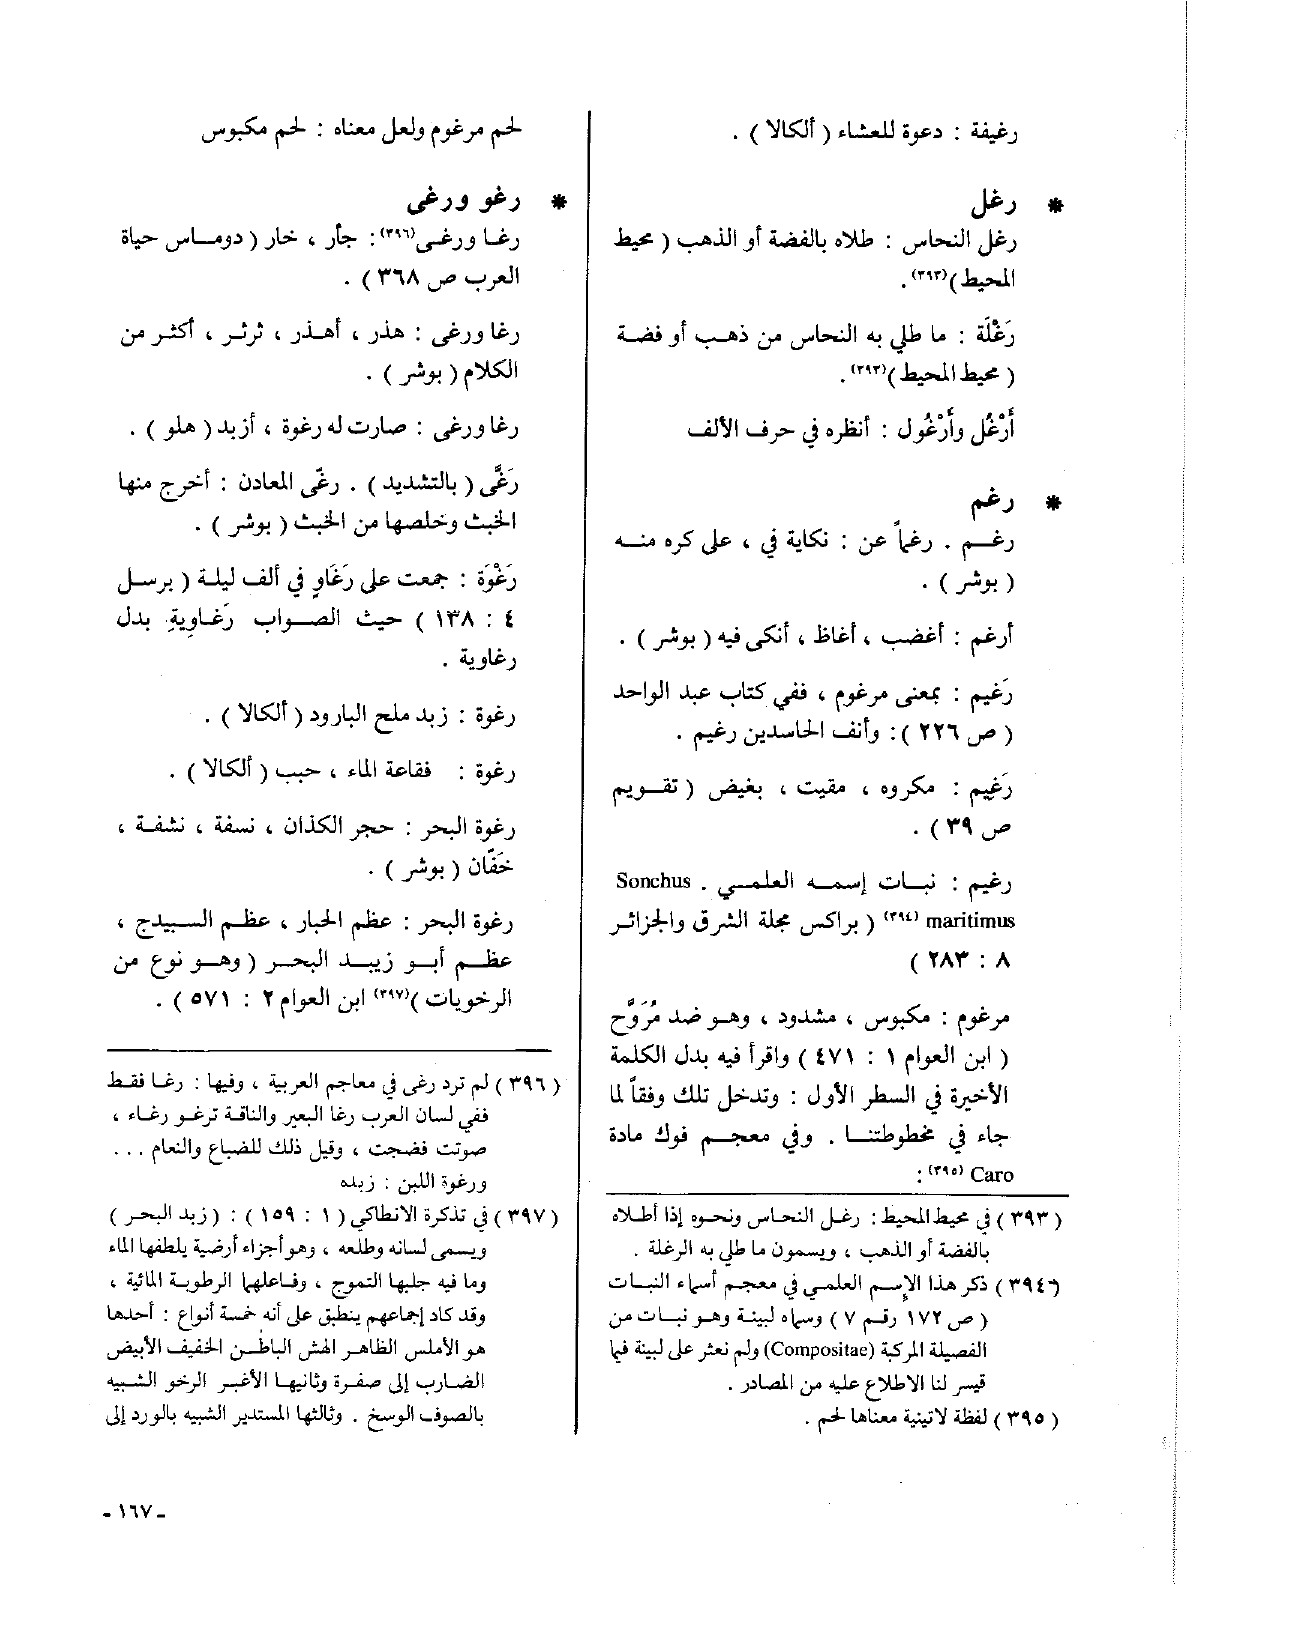 رغيفة : دعوة للعشاء ( ألكالا ) .
* رغل
رغل النحاس : طلاه بالفضة أو الذهب ( محيط
المحيط )(٣٩٣).
رَغْلَة : ما طلي به النحاس من ذهب أو فضة
( محيط المحيط )(٣٩٣).
أَرْغُل وأَرْغُول : أنظره في حرف الألف
* رغم
رغم . رغماً عن : نكاية في ، على كره منه
( بوشر ) .
أرغم : أغضب ، أغاظ ، أنكى فيه ( بوشر ) .
رَغيم : بمعنى مرغوم ، ففي كتاب عبد الواحد
( ص ٢٢٦ ): وأنف الحاسدين رغيم .
رَغيم : مكروه ، مقيت ، بغيض ( تقويم
ص ٣٩ ) .
رغيم : نبات إسمه العلمي . Sonchus
maritimus (٣٩٤) ( براكس مجلة الشرق والجزائر
٨ : ٢٨٣ )
مرغوم : مكبوس ، مشدود ، وهو ضد مُرَوَّح
( ابن العوام ١ : ٤٧١ ) واقرأ فيه بدل الكلمة
الأخيرة في السطر الأول : وتدخل تلك وفقاً لما
جاء في مخطوطتنا . وفي معجم فوك مادة
Caro (٣٩٥) :
( ٣٩٣ ) في محيط المحيط : رغل النحاس ونحوه إذا أطلاه
بالفضة أو الذهب ، ويسمون ما طلي به الرغلة .
( ٣٩٤ ) ذكر هذا الإسم العلمي في معجم أسماء النبات
( ص ١٧٢ رقم ٧ ) وسماه لبينة وهو نبات من
الفصيلة المركبة (Compositae) ولم نعثر على لبينة فيما
تيسر لنا الاطلاع عليه من المصادر .
( ٣٩٥ ) لفظة لاتينية معناها لحم .
لحم مرغوم ولعل معناه : لحم مكبوس
* رغو ورغى
رغا ورغى(٣٩٦): جأر ، خار ( دوماس حياة
العرب ص ٣٦٨ ) .
رغا ورغى : هذر ، أهذر ، ثرثر ، أكثر من
الكلام ( بوشر ) .
رغا ورغى : صارت له رغوة ، أزبد ( هلو ) .
رَغَّى ( بالتشديد ) . رغّى المعادن : أخرج منها
الخبث وخلصها من الخبث ( بوشر ) .
رَغْوَة : جمعت على رَغَاوٍ في ألف ليلة ( برسل
٤ : ١٣٨ ) حيث الصواب رَغاوِيةِ بدل
رغاوية .
رغوة : زبد ملح البارود ( ألكالا ) .
رغوة : فقاعة الماء ، حبب ( ألكالا ) .
رغوة البحر : حجر الكذان ، نسفة ، نشفة ،
خَفّان ( بوشر ) .
رغوة البحر : عظم الحبار ، عظم السبيدج ،
عظم أبو زبيد البحر ( وهو نوع من
الرخويات )(٣٩٧) ابن العوام ٢ : ٥٧١ ) .
( ٣٩٦ ) لم ترد رغى في معاجم العربية ، وفيها : رغا فقط
ففي لسان العرب رغا البعير والناقة ترغو رغاء ،
صوتت فضجت ، وقيل ذلك للضباع والنعام ...
ورغوة اللبن : زبده
( ٣٩٧ ) في تذكرة الانطاكي ( ١ : ١٥٩ ) : ( زبد البحر )
ويسمى لسانه وطلعه ، وهو أجزاء أرضية يلطفها الماء
وما فيه جلبها التموج ، وفاعلها الرطوبة المائية ،
وقد كاد إجماعهم ينطبق على أنه خمسة أنواع : أحدها
هو الأملس الظاهر الهش الباطن الخفيف الأبيض
الضارب إلى صفرة وثانيها الأغبر الرخو الشبيه
بالصوف الوسخ . وثالثها المستدير الشبيه بالورد إلى
- ١٦٧ -